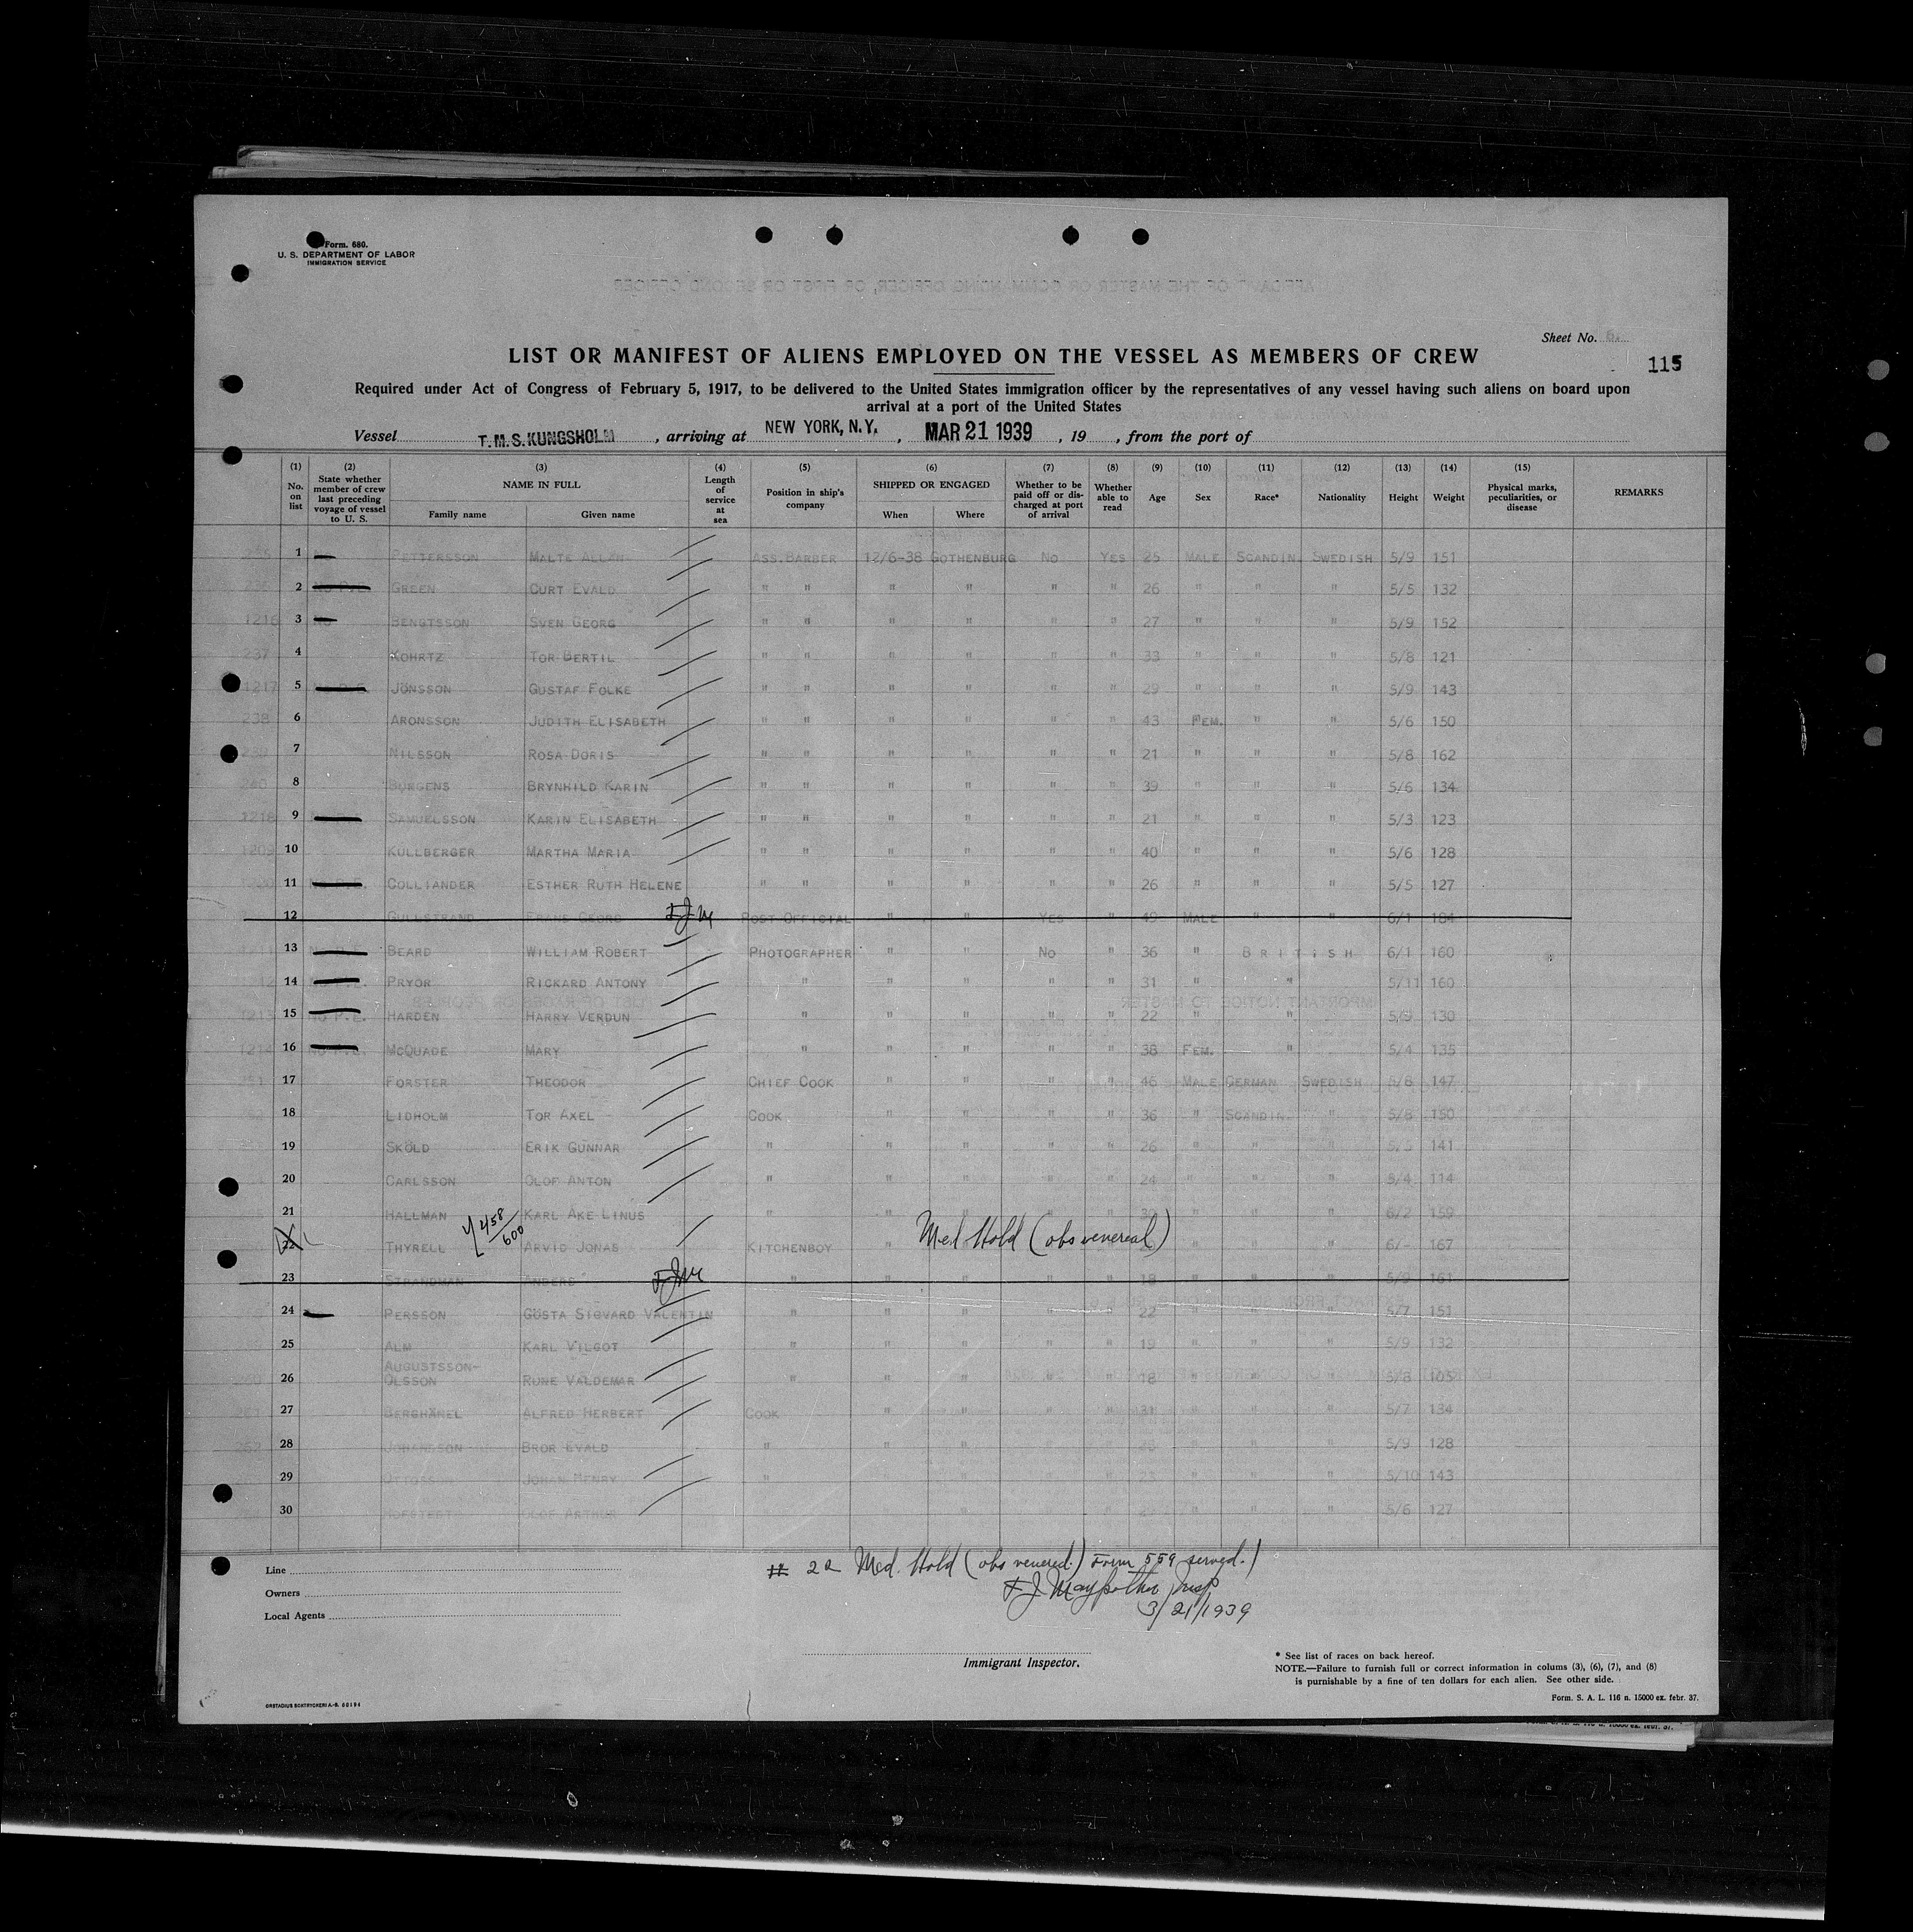 Form. 680.
U. S. DEPARTMENT OF LABOR
IMMIGRATION SERVICE
Sheet No.
LIST OR MANIFEST OF ALIENS EMPLOYED ON THE VESSEL AS MEMBERS OF CREW
115
Required under Act of Congress of February 5, 1917, to be delivered to the United States immigration officer by the representatives of any vessel having such aliens on board upon
arrival at a port of the United States
Vessel T.M.S. KUNGSHOLM, arriving at NEW YORK, N.Y., MAR 21 1939, 19, from the port of
(1) (2) (3) (4) (5) (6) (7) (8) (9) (10) (11) (12) (13) (14) (15)
No. on list State whether member of crew last preceding voyage of vessel to U. S. NAME IN FULL Family name Given name Length of service at sea Position in ship's company SHIPPED OR ENGAGED When Where Whether to be paid off or discharged at port of arrival Whether able to read Age Sex Race* Nationality Height Weight Physical marks, peculiarities, or disease REMARKS
1 PETTERSSON MALTE ALLAN ASS. BARBER 12/6-38 GOTHENBURG NO YES 25 MALE SCANDIN. SWEDISH 5/9 151
2 GREEN CURT EVALD " " " " " " 26 " " " 5/5 132
1216 3 BENGTSSON SVEN GEORG " " " " " " 27 " " " 5/9 152
237 4 KOHRTZ TOR BERTIL " " " " " " 33 " " " 5/8 121
1217 5 JÖNSSON GUSTAF FOLKE " " " " " " 29 " " " 5/9 143
238 6 ARONSSON JUDITH ELISABETH " " " " " " 43 FEM. " " 5/6 150
239 7 NILSSON ROSA DORIS " " " " " " 21 " " " 5/8 162
240 8 BÜRGENS BRYNHILD KARIN " " " " " " 39 " " " 5/6 134
1218 9 SAMUELSSON KARIN ELISABETH " " " " " " 21 " " " 5/3 123
1209 10 KULLBERGER MARTHA MARIA " " " " " " 40 " " " 5/6 128
11 COLLIANDER ESTHER RUTH HELENE " " " " " " 26 " " " 5/5 127
12 GULLSTRAND FRANS GEORG FJM POST OFFICIAL " " YES " 49 MALE " " 6/1 184
13 BEARD WILLIAM ROBERT PHOTOGRAPHER " " NO " 36 " BRITISH 6/1 160
14 PRYOR RICKARD ANTONY " " " " " 31 " " 5/11 160
1213 15 NO P.E. HARDEN HARRY VERDUN " " " " " 22 " " 5/9 130
1214 16 NO P.E. MCQUADE MARY " " " " " 38 FEM. " 5/4 135
17 FORSTER THEODOR CHIEF COOK " " " " 46 MALE GERMAN SWEDISH 5/6 147
18 LIDHOLM TOR AXEL COOK " " " " 36 " SCANDIN. " 5/8 150
19 SKÖLD ERIK GUNNAR " " " " " 26 " " " 5/5 141
20 CARLSSON OLOF ANTON " " " " " 24 " " " 5/4 114
21 HALLMAN KARL ÅKE LINUS " " 30 " " " 6/2 159
22 THYRELL 458/600 ARVID JONAS KITCHENBOY " Med Hold (obs venereal) " " " 6/- 167
23 STRANDMAN ANDERS FJM " " " " " 18 " " " 5/9 161
24 PERSSON GÖSTA SIGVARD VALENTIN " " " " " 22 " " " 5/7 151
25 ALM KARL VILGOT " " " " " 19 " " " 5/9 132
26 AUGUSTSSON-OLSSON RUNE VALDEMAR " " " " " 18 " " " 5/8 105
27 BERGHÄNEL ALFRED HERBERT COOK " " " " 31 " " " 5/7 134
28 JOHANSSON BROR EVALD " " " " " " " " 5/9 128
29 OTTOSSON JOHAN HENRY " " " " " " " " 5/10 143
30 OLOF ARTHUR " " " " " " " 5/6 127
Line
Owners
Local Agents
# 22 Med. Hold (obs venereal.) Form 559 served.)
F J Maypother Insp
3/21/1939
Immigrant Inspector.
* See list of races on back hereof.
NOTE.—Failure to furnish full or correct information in colums (3), (6), (7), and (8)
is purnishable by a fine of ten dollars for each alien. See other side.
ORSTADIUS BOKTRYCKERI A.-B. 50194
Form. S. A. L. 116 n. 15000 ex. febr. 37.